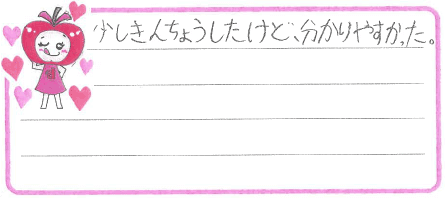 少しきんちょうしたけど、分かりやすかった。